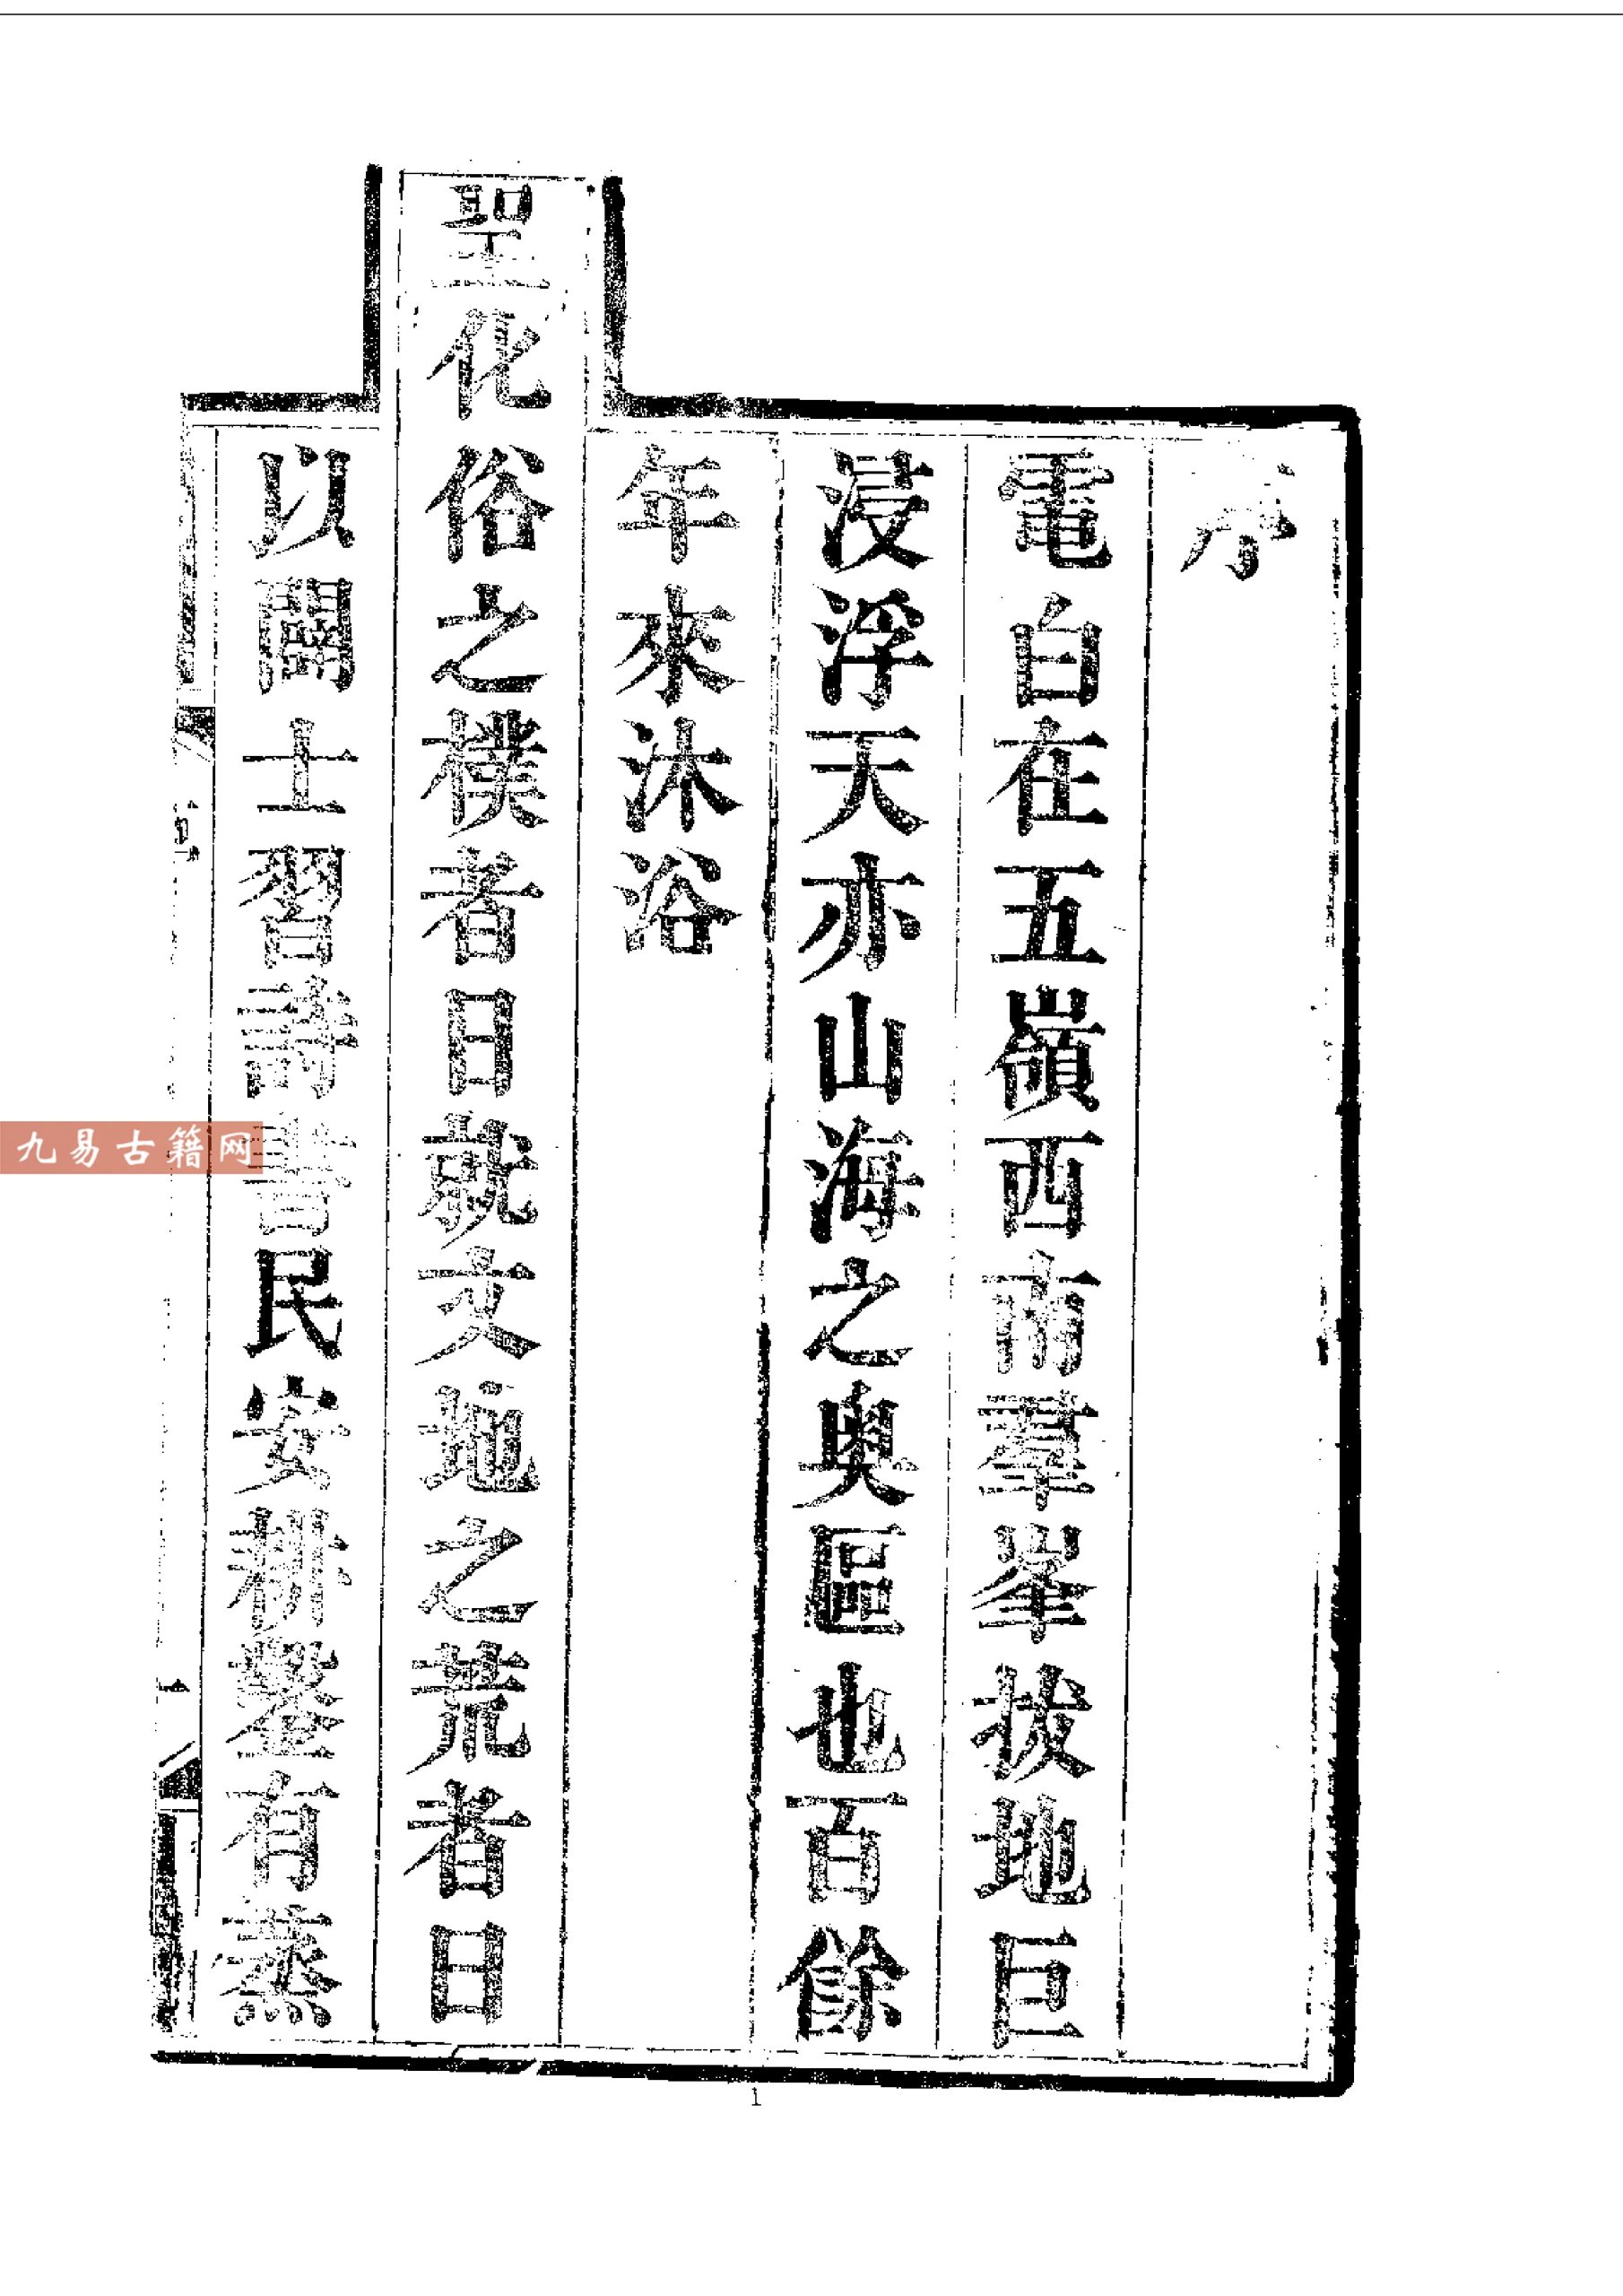 序
電白在五嶺西南羣峯拔地巨
浸浮天亦山海之奥區也百餘
年來沐浴
聖化俗之樸者日就文地之荒者日
以闢士習詩書民安耕鑿有蒸
序
一
九易古籍网
1